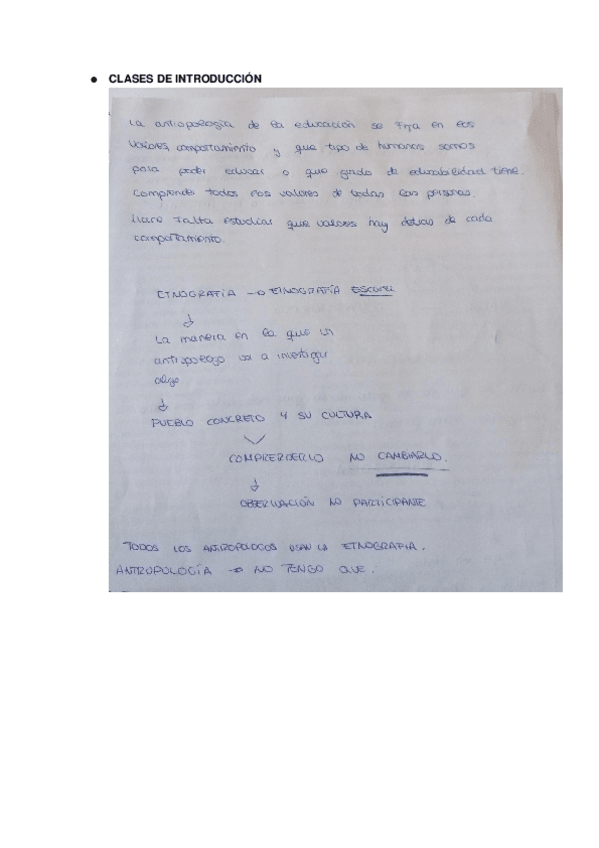 ● CLASES DE INTRODUCCIÓN
La antropología de la educación se fija en los
valores, comportamiento y que tipo de humanos somos
para poder educar o que grado de educabilidad tiene.
Comprende todos los valores de todas las personas.
Hace falta estudiar que valores hay detrás de cada
comportamiento.
ETNOGRAFÍA → ETNOGRAFÍA
↓
La manera en la que un
antropólogo va a investigar
algo
↓
PUEBLO CONCRETO Y SU CULTURA
COMPRENDERLO NO CAMBIARLO.
↓
OBSERVACIÓN NO PARTICIPANTE
TODOS LOS ANTROPOLOGOS USAN LA ETNOGRAFIA.
ANTROPOLOGÍA → NO TENGO QUE.